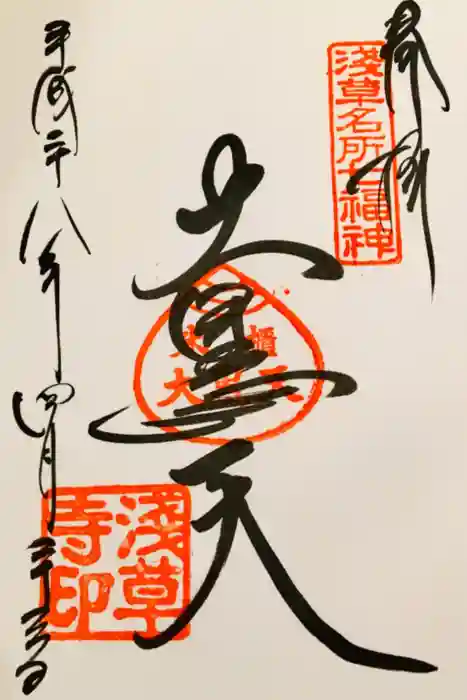 奉拝
淺草名所七福神
大黒天
米櫃
大黒天
平成二十八年四月
淺草寺印